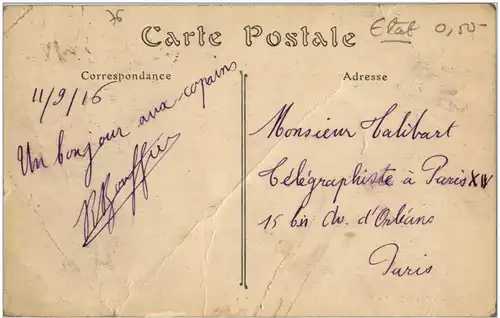 76
Carte Postale
Etat 0,50
Correspondance
Adresse
11/9/16
Un bonjour aux copains
Monsieur Talibart
Télégraphiste à Paris XIV
15 bis Av. d'Orléans
Paris